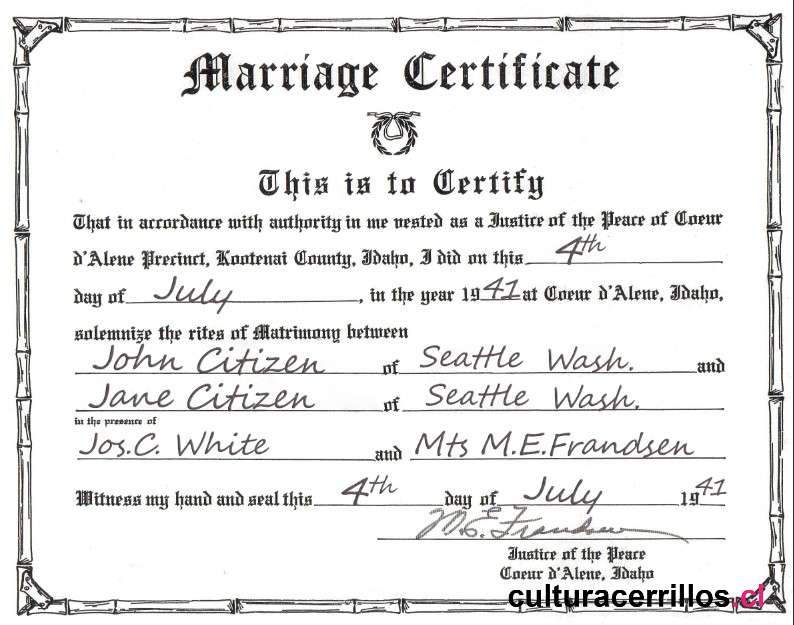 Marriage Certificate
This is to Certify
That in accordance with authority in me vested as a Justice of the Peace of Coeur
d'Alene Precinct, Kootenai County, Idaho, I did on this 4th
day of July, in the year 1941 at Coeur d'Alene, Idaho,
solemnize the rites of Matrimony between
John Citizen of Seattle Wash. and
Jane Citizen of Seattle Wash.
in the presence of
Jos.C. White and Mts M.E.Frandsen
Witness my hand and seal this 4th day of July 1941
M.E. Frandsen
Justice of the Peace
Coeur d'Alene, Idaho
culturacerrillos.cl